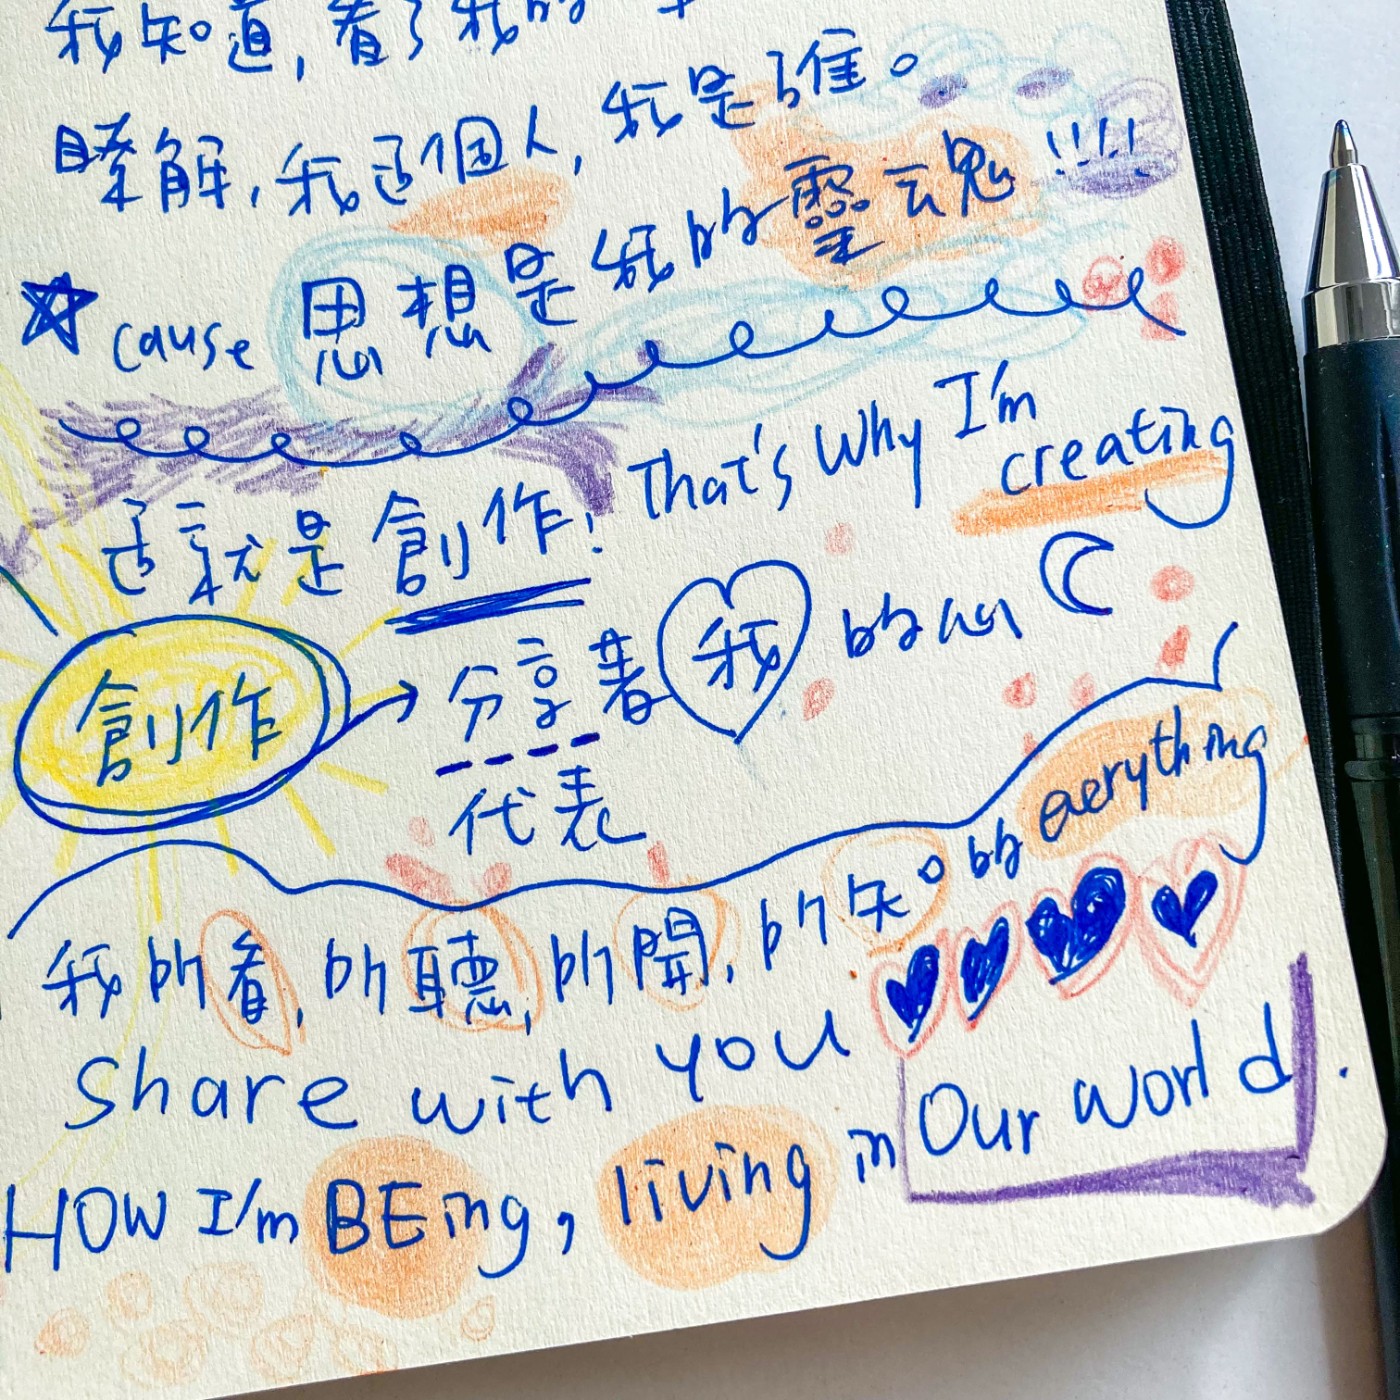 我知道,看了我的
瞭解,我这個人,我是誰。
cause 思想是我的靈魂!!!!
这就是創作! That's Why I'm creating
創作 → 分享著 我 的心
代表
我所看,所聽,所聞,所知。的 everything
Share with you
HOW I'm BEing, living in Our world.